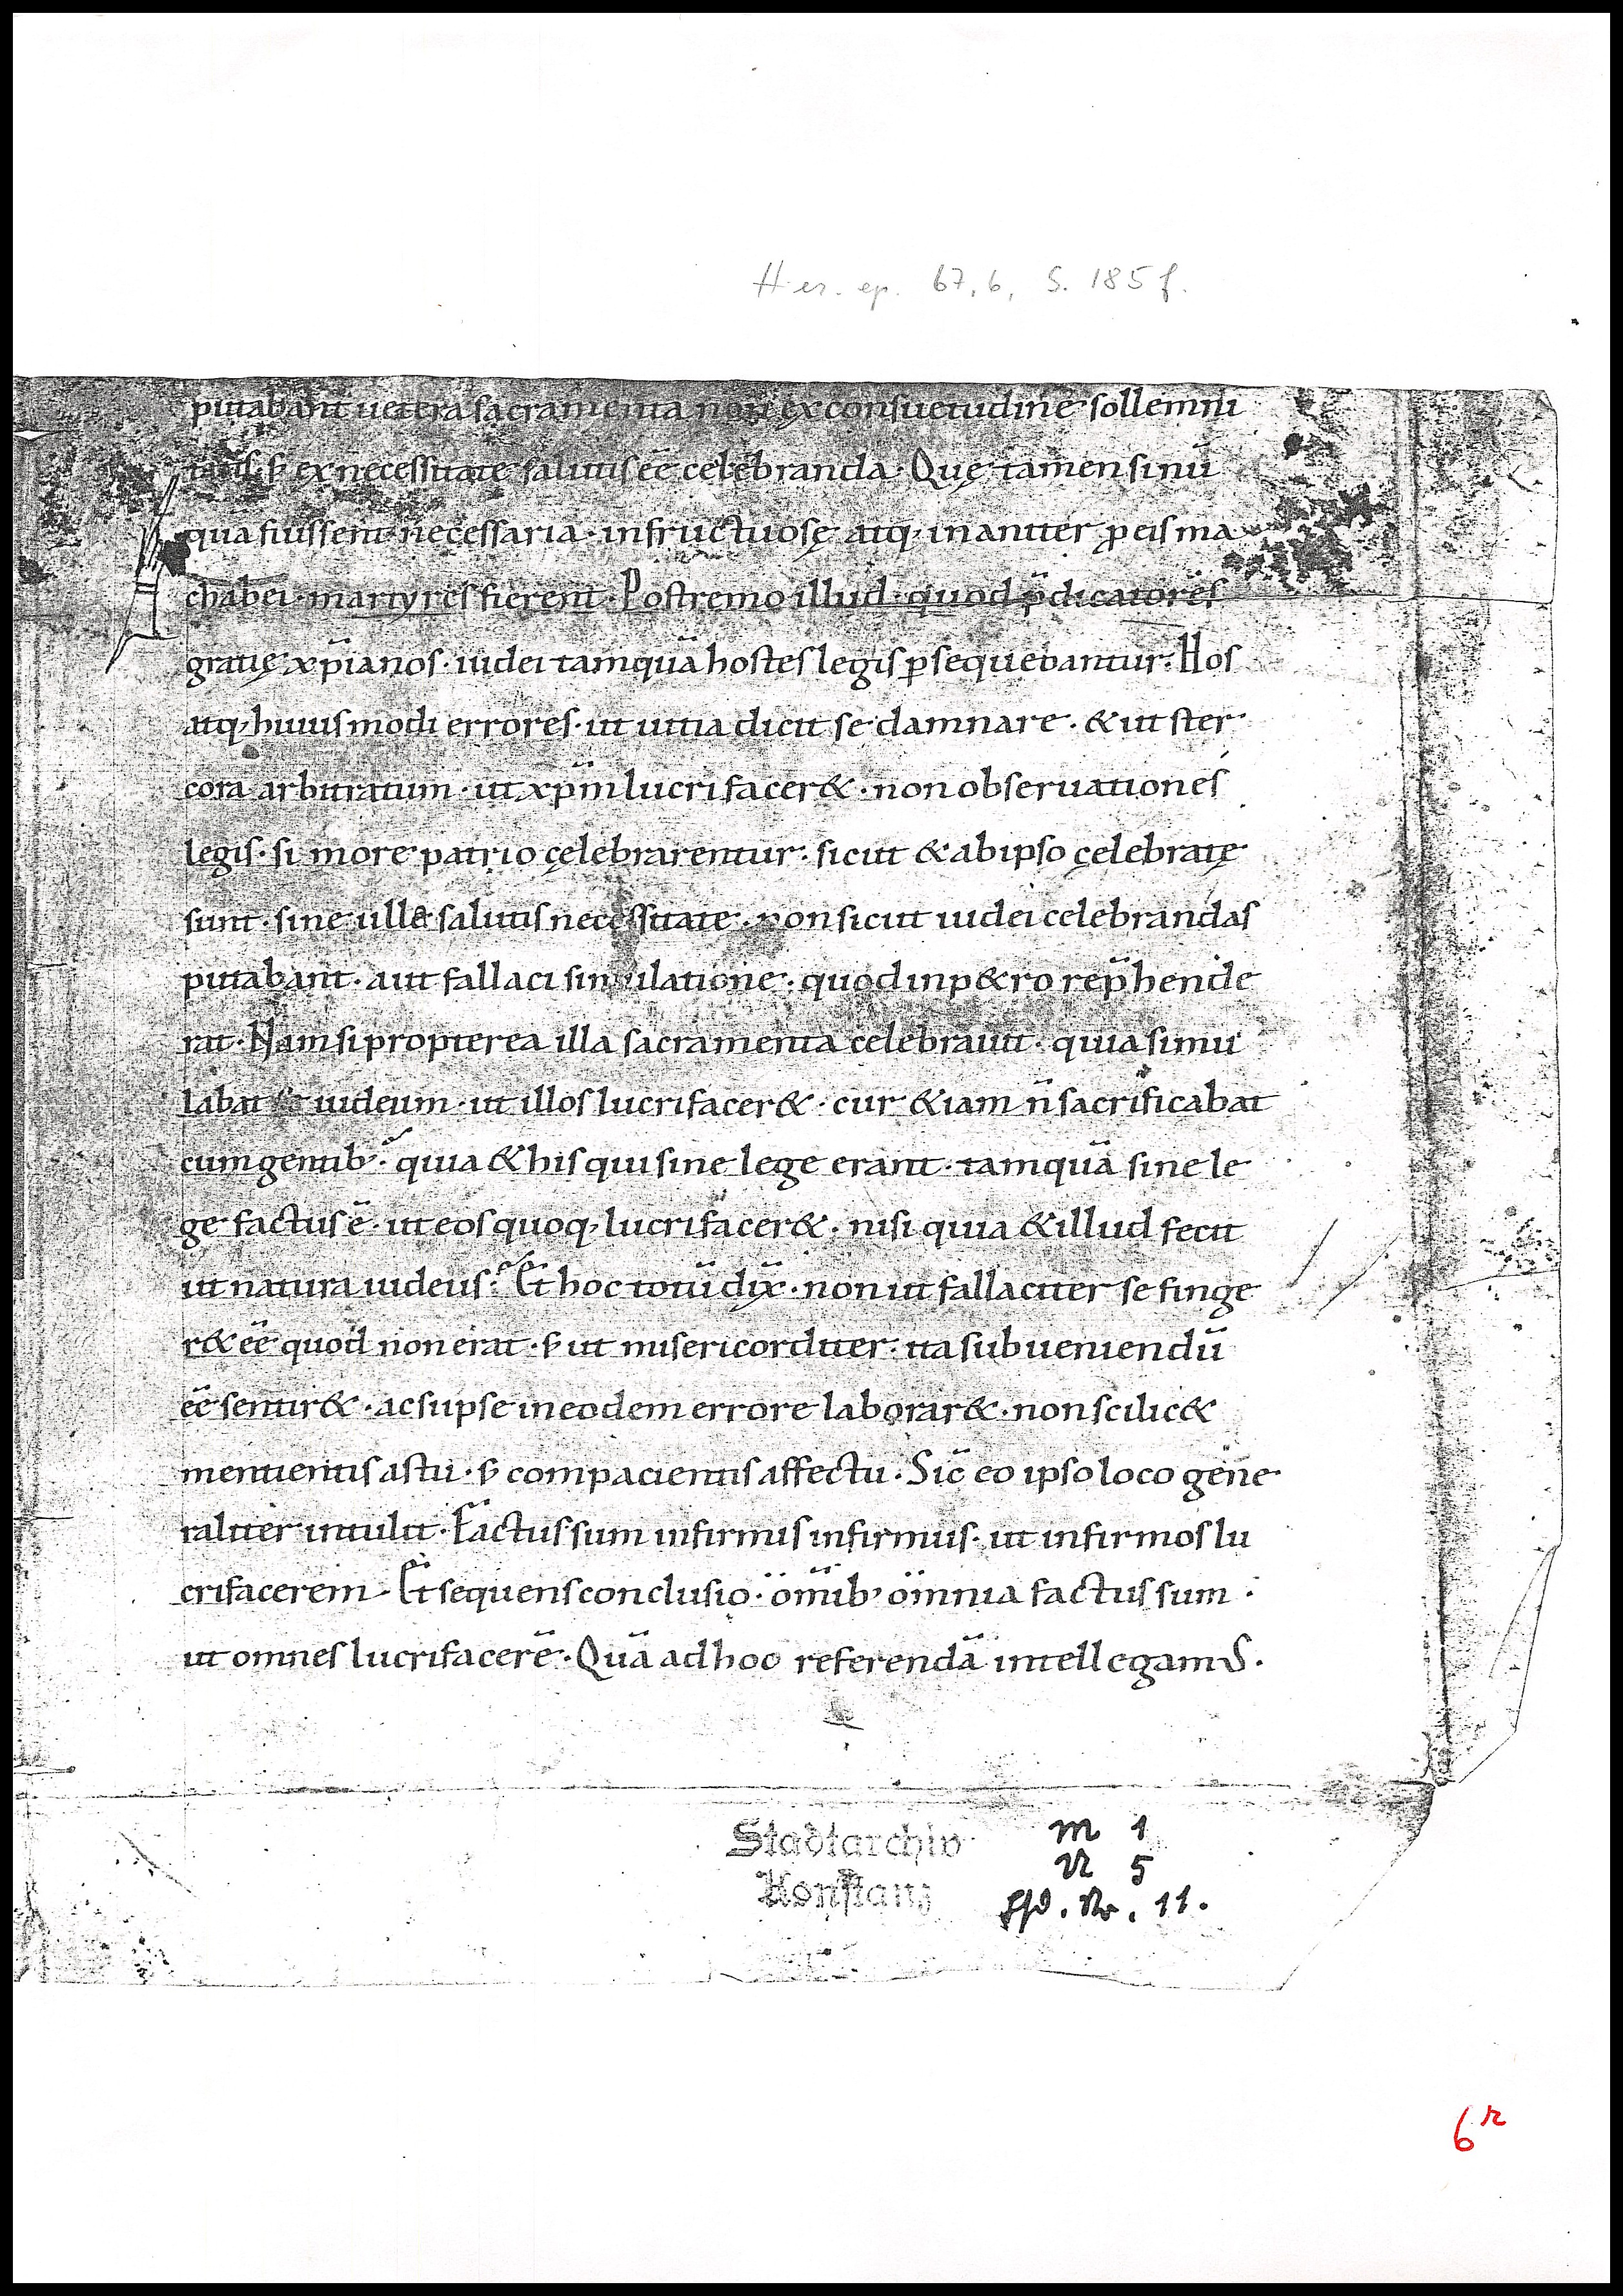 Her. ep. 67,6, S. 185 f.
putabant uetera sacramenta non ex consuetudine sollemni
tatis· s; ex necessitate salutis eē celebranda· Quę tamen si nū
quā fuissent necessaria· infructuosę atq; inaniter ꝓ eis ma
chabei· martyres fierent· Postremo illud· quod p̄dicatores
gratię xp̄ianos· iudei tamquā hostes legis ꝑsequebantur· Hos
atq; huiusmodi errores· ut uitia dicit se damnare· & ut ster
cora arbitratum· ut xp̄m lucrifacer&· non obseruationes
legis· si more patrio cęlebrarentur· sicut & ab ipso cęlebratę
sunt· sine ulla salutis necessitate· non sicut iudei celebrandas
putabant· aut fallaci simulatione· quod in p&ro rep̄hende
rat· Nam si propterea illa sacramenta celebrauit· quia simu
labat se iudeum· ut illos lucrifacer&· cur &iam n̄ sacrificabat
cum gentib;· quia & his qui sine lege erant· tamquā sine le
ge factus ē· ut eos quoq; lucrifacer&· nisi quia & illud fecit
ut natura iudeus· Et hoc totū dix̄· non ut fallaciter se finge
r& eē quod non erat· s; ut misericorditer· ita subueniendū
eē sentir&· ac si ipse in eodem errore laborar&· non scilic&
mentientis astu· s; compacientis affectu· Sic̄ eo ipso loco gene
raliter intulit· Factus sum infirmis infirmus· ut infirmos lu
crifacerem· Et sequens conclusio· om̄ib; omnia factus sum·
ut omnes lucrifacerē· Quā ad hoc referendā intellegamus·
Stadtarchiv
Konstanz
M 1
U 5
Lfd. Nr. 11.
6r